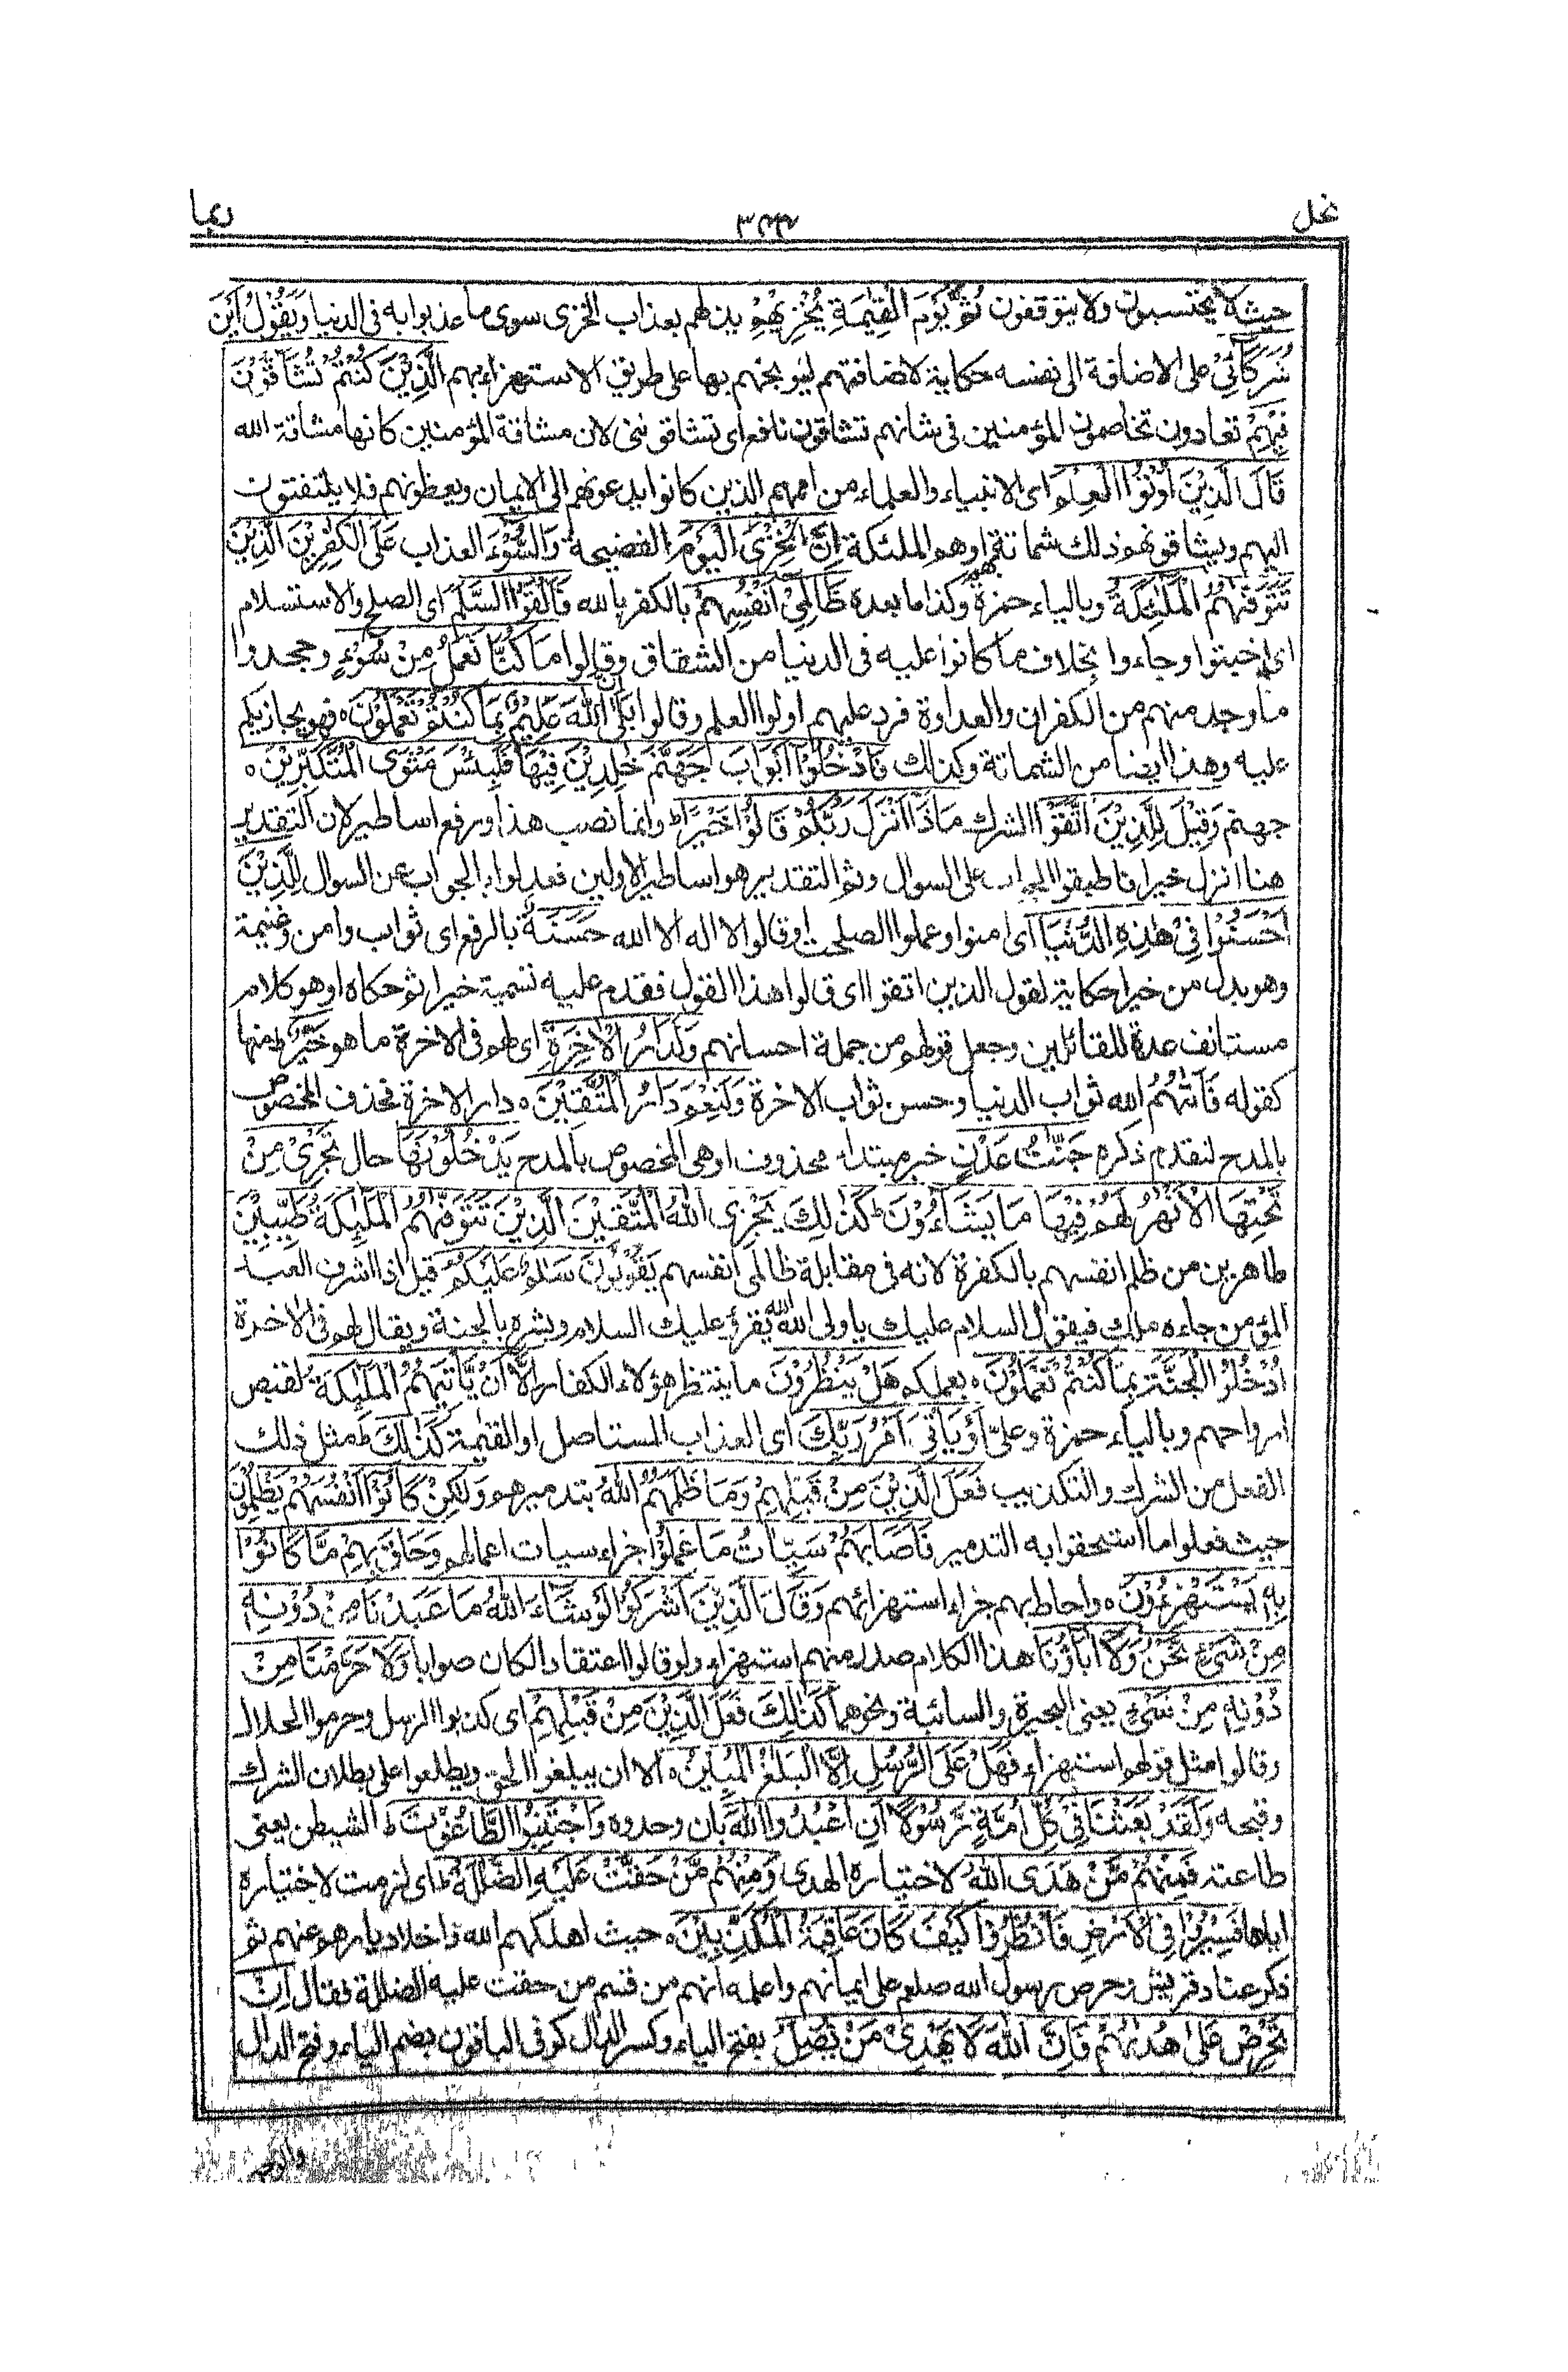 نحل ٣٤٤ ربما
حيث لا يحتسبون ولا يتوقعون ثُمَّ يَوْمَ الْقِيٰمَةِ يُخْزِيْهِمْ يذلهم بعذاب الخزى سوى ما عذبوا به فى الدنيا وَيَقُوْلُ اَيْنَ
شُرَكَآئِىْ على الاضافة الى نفسه حكاية لاضافتهم ليوبخهم بها على طريق الاستهزاء بهم الَّذِيْنَ كُنْتُمْ تُشَآقُّوْنَ
فِيْهِمْ تعادون تخاصمون المؤمنين فى شانهم تشاقون نافع اى تشاقوننى لان مشاقة المؤمنين كانها مشاقة الله
قَالَ الَّذِيْنَ اُوْتُوا الْعِلْمَ اى الانبياء والعلماء من اممهم الذين كانوا يدعونهم الى الايمان ويعظونهم فلا يلتفتون
اليهم ويشاقونهم يقولون ذلك شماتة بهم او هم الملئكة اِنَّ الْخِزْىَ الْيَوْمَ الفضيحة وَالسُّوْٓءَ العذاب عَلَى الْكٰفِرِيْنَ الَّذِيْنَ
تَتَوَفّٰىهُمُ الْمَلٰٓئِكَةُ وبالياء حمزة وكذا ما بعده ظَالِمِىْٓ اَنْفُسِهِمْ بالكفر بالله فَاَلْقَوُا السَّلَمَ اى الصلح والاستسلام
اى اخبتوا وجاءوا بخلاف ما كانوا عليه فى الدنيا من الشقاق وقالوا مَا كُنَّا نَعْمَلُ مِنْ سُوْٓءٍ وجحدوا
ما وجد منهم من الكفران والعداوة فرد عليهم اولوا العلم وقالوا بَلٰٓى اِنَّ اللّٰهَ عَلِيْمٌۢ بِمَا كُنْتُمْ تَعْمَلُوْنَ ه فهو يجازيكم
عليه وهذا ايضا من الشماتة وكذلك فَادْخُلُوْٓا اَبْوَابَ جَهَنَّمَ خٰلِدِيْنَ فِيْهَا فَلَبِئْسَ مَثْوَى الْمُتَكَبِّرِيْنَ ه
جهنم وَقِيْلَ لِلَّذِيْنَ اتَّقَوْا الشرك مَاذَآ اَنْزَلَ رَبُّكُمْ قَالُوْا خَيْرًا ط وانما نصب هذا ورفع اساطير لان التقدير
هنا انزل خيرا فاطبقوا الجواب على السوال وثم التقدير هو اساطير الاولين فعدلوا بالجواب عن السوال لِلَّذِيْنَ
اَحْسَنُوْا فِىْ هٰذِهِ الدُّنْيَا اى امنوا وعملوا الصلحت او قالوا لا اله الا الله حَسَنَةٌ بالرفع اى ثواب وامن وغنيمة
وهو بدل من خيرا حكاية لقول الذين اتقوا اى قالوا هذا القول فقدم عليه تسمية خيرا ثم حكاه او هو كلام
مستانف عدة للقائلين وجعل قولهم من جملة احسانهم وَلَدَارُ الْاٰخِرَةِ اى لهم فى الاخرة ما هو خَيْرٌ ط منها
كقوله فَاٰتٰهُمُ الله ثواب الدنيا وحسن ثواب الاخرة وَلَنِعْمَ دَارُ الْمُتَّقِيْنَ ه دار الاخرة فحذف المخصوص
بالمدح لتقدم ذكره جَنّٰتُ عَدْنٍ خبر مبتدا محذوف او هى المخصوص بالمدح يَدْخُلُوْنَهَا حال تَجْرِىْ مِنْ
تَحْتِهَا الْاَنْهٰرُ لَهُمْ فِيْهَا مَا يَشَآءُوْنَ ط كَذٰلِكَ يَجْزِى اللّٰهُ الْمُتَّقِيْنَ الَّذِيْنَ تَتَوَفّٰىهُمُ الْمَلٰٓئِكَةُ طَيِّبِيْنَ
طاهرين من ظلم انفسهم بالكفرة لانه فى مقابلة ظالمى انفسهم يَقُوْلُوْنَ سَلٰمٌ عَلَيْكُمْ قيل اذا اشرف العبد
المؤمن جاءه ملك فيقول السلام عليك يا ولى الله الله يقرؤ عليك السلام ويشره بالجنة ويقال لهم فى الاخرة
اُدْخُلُوا الْجَنَّةَ بِمَا كُنْتُمْ تَعْمَلُوْنَ ه بعملكم هَلْ يَنْظُرُوْنَ ما ينتظر هؤلاء الكفار اِلَّآ اَنْ يَّاْتِيَهُمُ الْمَلٰٓئِكَةُ لقبض
ارواحهم وبالياء حمزة وعلى اَوْ يَاْتِىَ اَمْرُ رَبِّكَ اى العذاب المستاصل او القيمة كَذٰلِكَ ط مثل ذلك
الفعل من الشرك والتكذيب فَعَلَ الَّذِيْنَ مِنْ قَبْلِهِمْ وَمَا ظَلَمَهُمُ اللّٰهُ بتدميرهم وَلٰكِنْ كَانُوْٓا اَنْفُسَهُمْ يَظْلِمُوْنَ
حيث فعلوا ما استحقوا به التدمير فَاَصَابَهُمْ سَيِّاٰتُ مَا عَمِلُوْا جزاء سيات اعمالهم وَحَاقَ بِهِمْ مَّا كَانُوْا
بِهٖ يَسْتَهْزِءُوْنَ ه واحاط بهم جزاء استهزائهم وَقَالَ الَّذِيْنَ اَشْرَكُوْا لَوْ شَآءَ اللّٰهُ مَا عَبَدْنَا مِنْ دُوْنِهٖ
مِنْ شَىْءٍ نَّحْنُ وَلَآ اٰبَآؤُنَا هذا الكلام صدر منهم استهزاء ولو قالوا اعتقادا لكان صوابا وَلَا حَرَّمْنَا مِنْ
دُوْنِهٖ مِنْ شَىْءٍ يعنى البحيرة والسائبة ونحوهما كَذٰلِكَ فَعَلَ الَّذِيْنَ مِنْ قَبْلِهِمْ اى كذبوا الرسل وحرموا الحلال
وقالوا مثل قولهم استهزاء فَهَلْ عَلَى الرُّسُلِ اِلَّا الْبَلٰغُ الْمُبِيْنُ ه الا ان يبلغوا الحق ويطلعوا على بطلان الشرك
وقبحه وَلَقَدْ بَعَثْنَا فِىْ كُلِّ اُمَّةٍ رَّسُوْلًا اَنِ اعْبُدُوا اللّٰهَ بان وحدوه وَاجْتَنِبُوا الطَّاغُوْتَ ط الشيطن يعنى
طاعته فَمِنْهُمْ مَّنْ هَدَى اللّٰهُ لاختياره الهدى وَمِنْهُمْ مَّنْ حَقَّتْ عَلَيْهِ الضَّلٰلَةُ ط اى لزمت لاختياره
اياها فَسِيْرُوْا فِى الْاَرْضِ فَانْظُرُوْا كَيْفَ كَانَ عَاقِبَةُ الْمُكَذِّبِيْنَ ه حيث اهلكهم الله واخلا ديارهم عنهم ثم
ذكر عناد قريش وحرص رسول الله صلعم على ايمانهم واعلمه انهم من قسم من حقت عليه الضللة فقال اِنْ
تَحْرِصْ عَلٰى هُدٰىهُمْ فَاِنَّ اللّٰهَ لَا يَهْدِىْ مَنْ يُّضِلُّ بفتح الياء وكسر الدال كوفى الباقون بضم الياء وفتح الدال